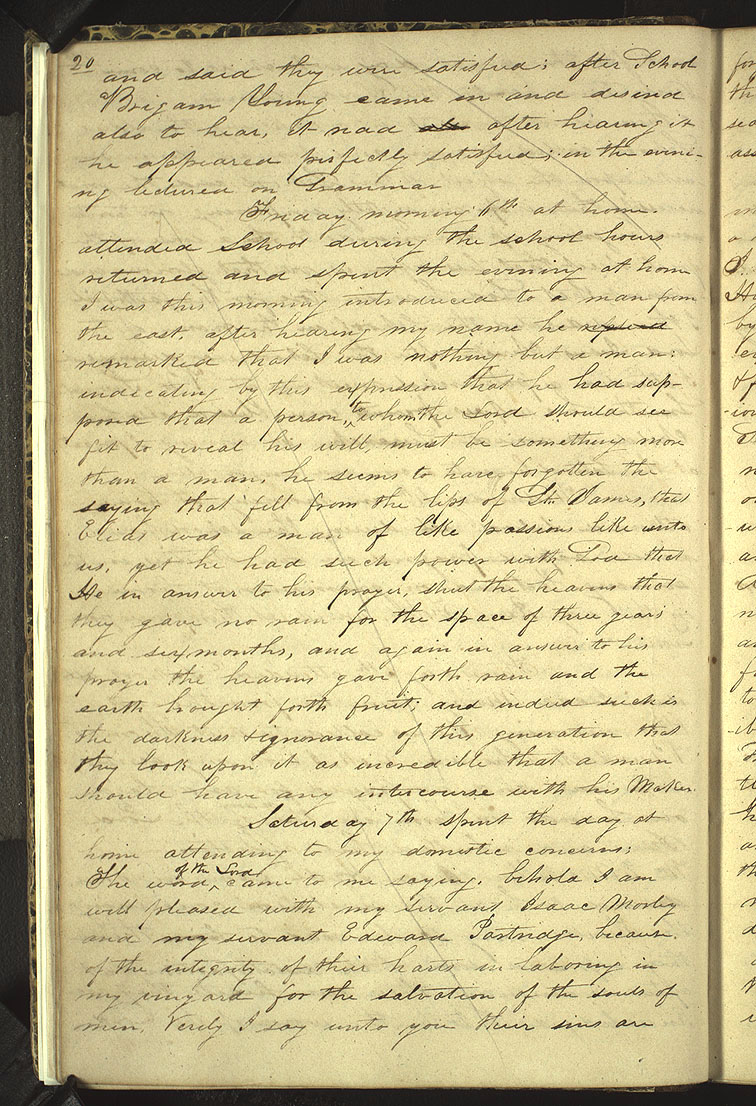 20
and said they were satisfied; after School
Brigam Young came in and desired
also to hear, it read after hearing it
he appeared perfectly satisfied; in the eveni-
ng lectured on Grammar
Friday morning 6th at home.
attended School during the school hours
returned and spent the evening at home
I was this morning introduced to a man from
the east, after hearing my name he replied
remarked that I was nothing but a man:
indicating by this expression that he had sup-
posed that a person, to whom the Lord should see
fit to reveal his will, must be something more
than a man, he seems to have forgotten the
saying that fell from the lips of St. James, that
Elias was a man of like passions like unto
us, yet he had such power with God that
He in answer to his prayer, shut the heavens that
they gave no rain for the space of three years
and six months, and again in answer to his
prayer the heavens gave forth rain and the
earth brought forth fruit; and indeed such is
the darkness & ignorance of this generation that
they look upon it as incredible that a man
should have any intercourse with his Maker.
Saturday 7th spent the day at
home attending to my domestic concerns;
The word of the Lord came to me saying, behold I am
well pleased with my servant Isaac Morley
and my servant Edward Partridge, because
of the integrity of their harts in laboring in
my vinyard for the salvation of the souls of
men, Verily I say unto you their sins are